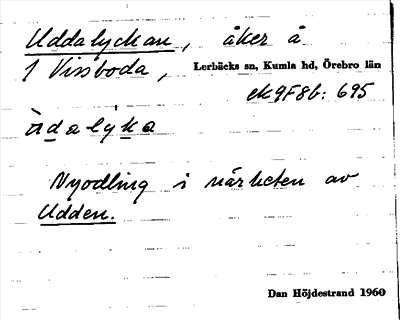 Uddalyckan, åker å
1 Vissboda, Lerbäcks sn, Kumla hd, Örebro län
ek 9F8b: 695
ùdalỳka
Nyodling i närheten av
Udden.
Dan Höjdestrand 1960